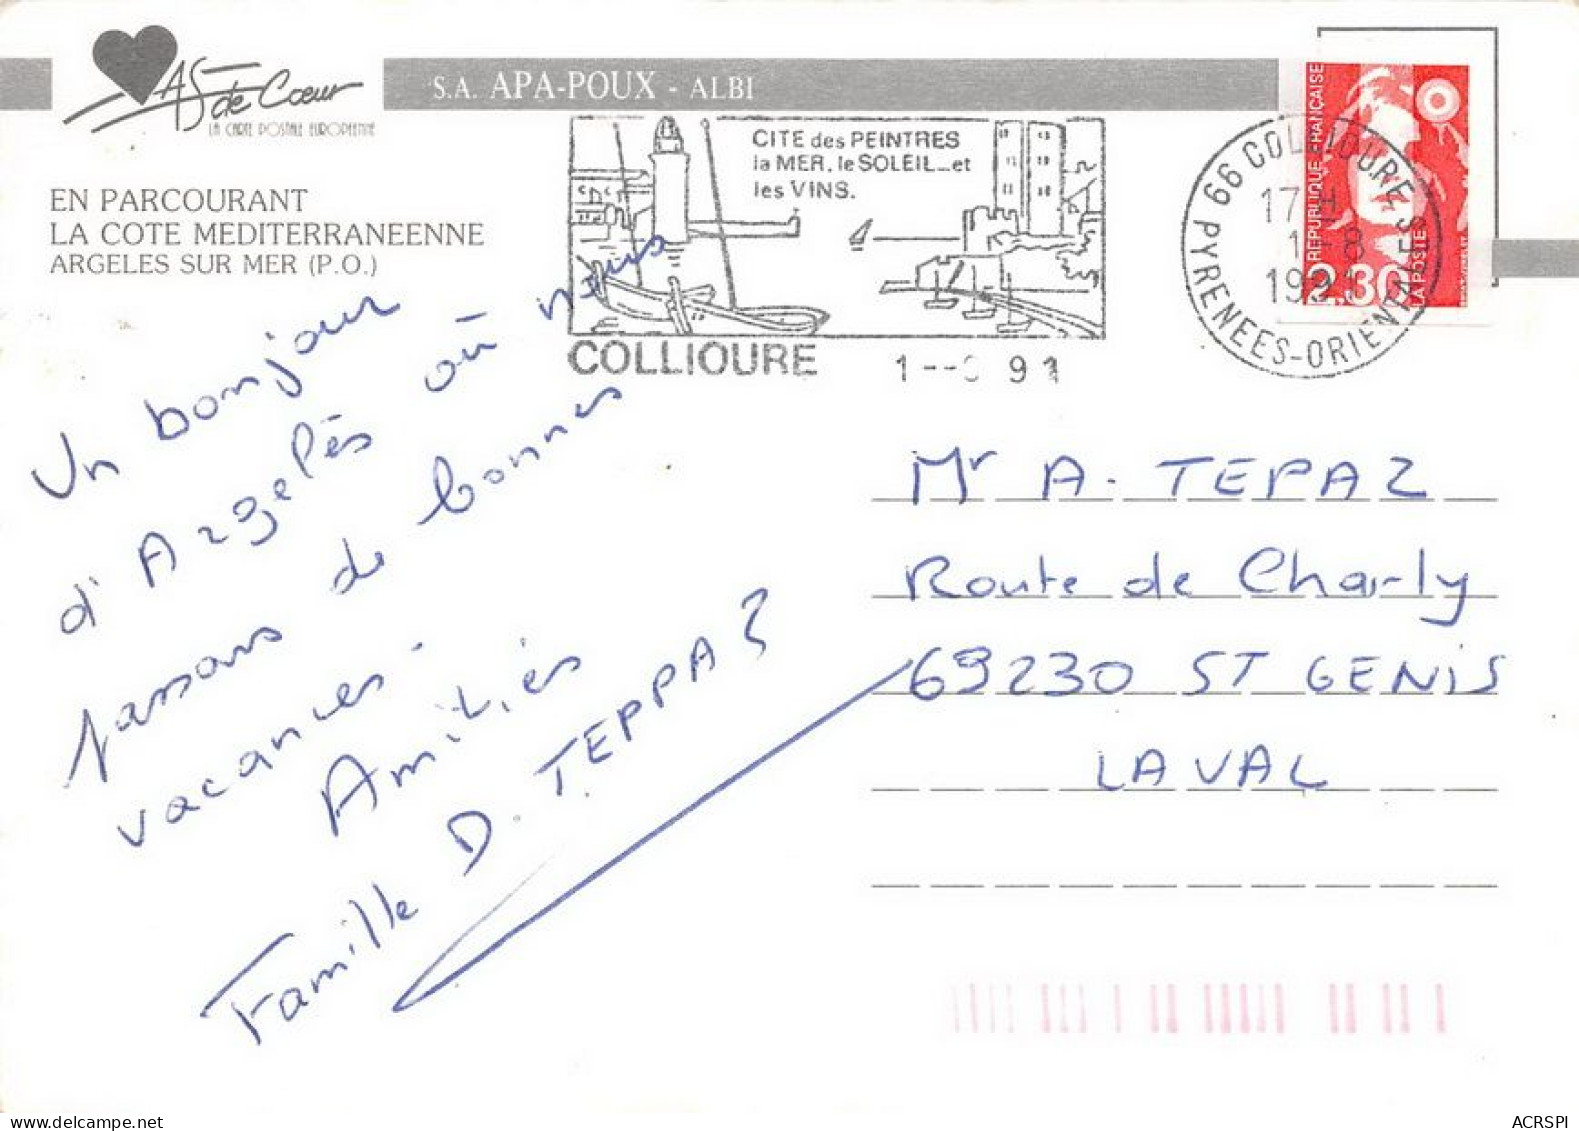 AS de Coeur
LA CARTE POSTALE EUROPEENNE
S.A. APA-POUX - ALBI
EN PARCOURANT
LA COTE MEDITERRANEENNE
ARGELES SUR MER (P.O.)
CITE des PEINTRES
la MER, le SOLEIL...et
les VINS.
COLLIOURE
66 COLLIOURE
PYRENEES-ORIENTALES
17 H
1-8
1991
REPUBLIQUE FRANÇAISE
2,30
LA POSTE
Un bonjour
d'Argelès où nous
passons de bonnes
vacances.
Amitiés
Famille D. TEPPAZ
Mr A. TEPAZ
Route de Charly
69230 ST GENIS
LAVAL
ACRSPI